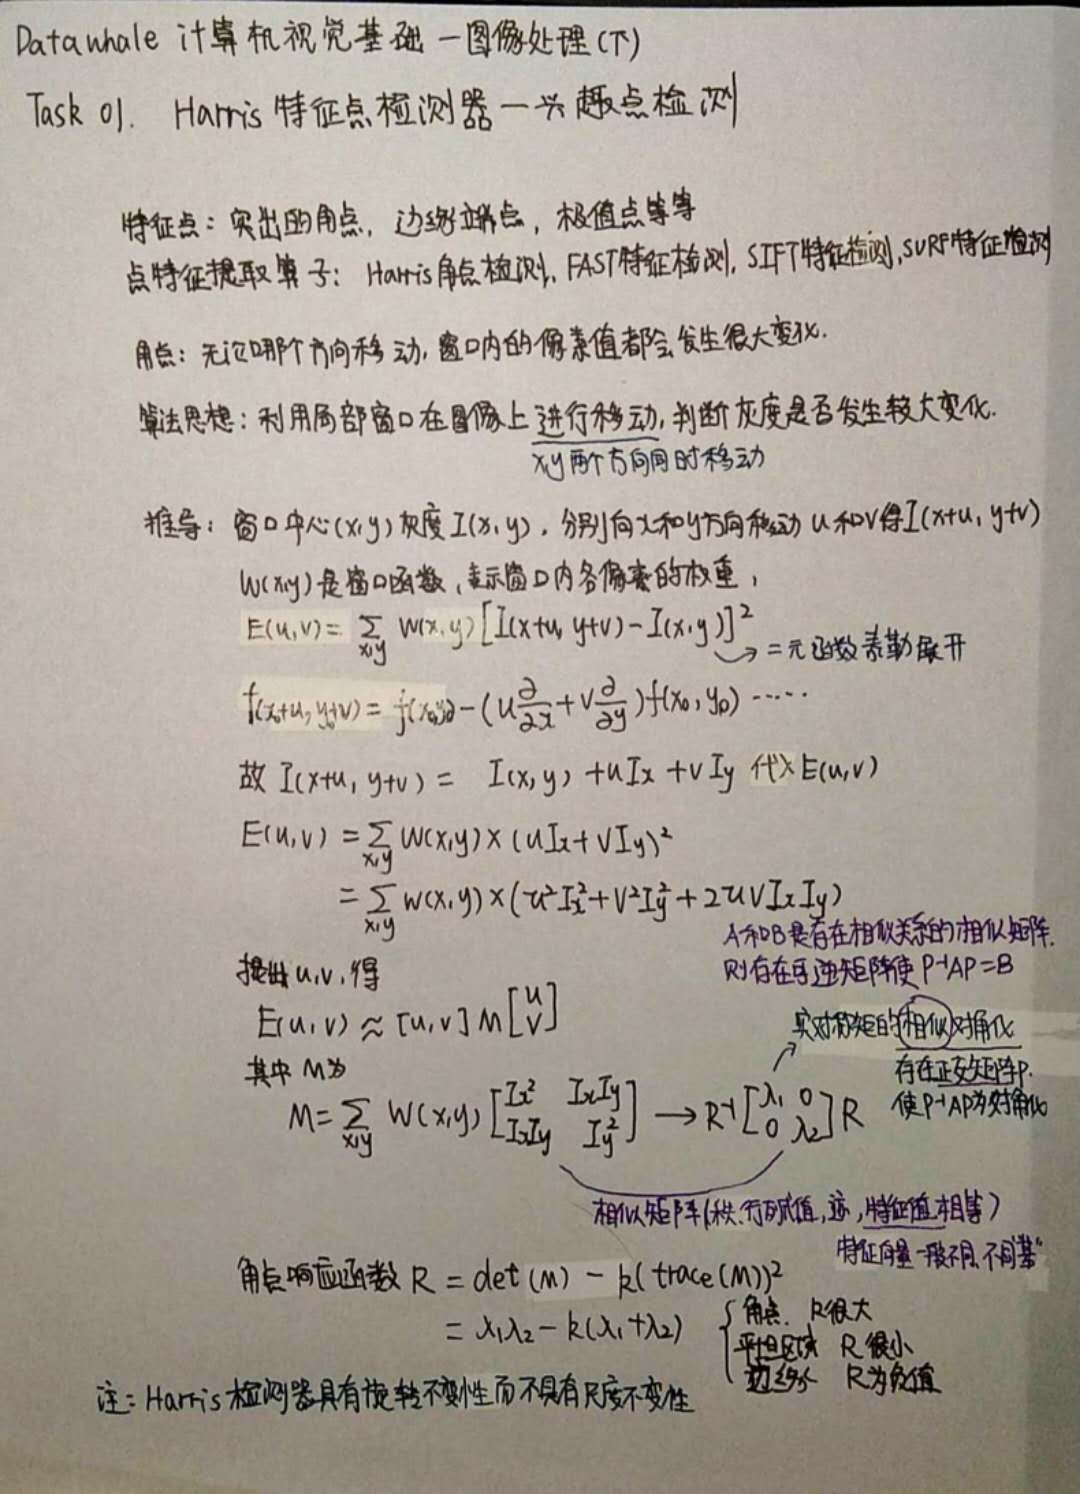 Datawhale 计算机视觉基础一图像处理(下)
Task 01. Harris 特征点检测器一兴趣点检测
特征点：突出的角点，边缘端点，极值点等等
点特征提取算子：Harris角点检测, FAST特征检测, SIFT特征检测, SURF特征检测
角点：无论哪个方向移动，窗口内的像素值都会发生很大变化.
算法思想：利用局部窗口在图像上进行移动，判断灰度是否发生较大变化.
x,y两个方向同时移动
推导：窗口中心(x,y)灰度I(x,y)，分别向x和y方向移动u和v得I(x+u, y+v)
W(x,y)是窗口函数，表示窗口内各像素的权重，
E(u,v)= ∑x,y W(x,y)[I(x+u, y+v)-I(x,y)]²
→二元函数泰勒展开
f(x₀+u, y₀+v)= f(x₀,y₀)-(u∂/∂x+v∂/∂y)f(x₀,y₀) ·····
故 I(x+u, y+v) = I(x,y)+uIx+vIy 代入E(u,v)
E(u,v) = ∑x,y W(x,y)×(uIx+vIy)²
= ∑x,y w(x,y)×(u²Ix²+v²Iy²+2uvIxIy)
A和B是存在相似关系的相似矩阵.
则存在可逆矩阵使 P⁻¹AP=B
提出u,v,得
E(u,v) ≈ [u,v] M [u v]
实对称矩的相似对角化
存在正交矩阵P.
使P⁻¹AP为对角化
其中 M为
M= ∑x,y W(x,y) [Ix² IxIy IxIy Iy²] → R⁻¹ [λ₁ 0 0 λ₂] R
相似矩阵(秩,行列式值,迹,特征值相等)
特征向量一般不同,不同"基"
角点响应函数 R = det(M) - k(trace(M))²
= λ₁λ₂-k(λ₁+λ₂)
角点. R很大
平坦区域 R很小
边缘 R为负值
注：Harris检测器具有旋转不变性而不具有尺度不变性